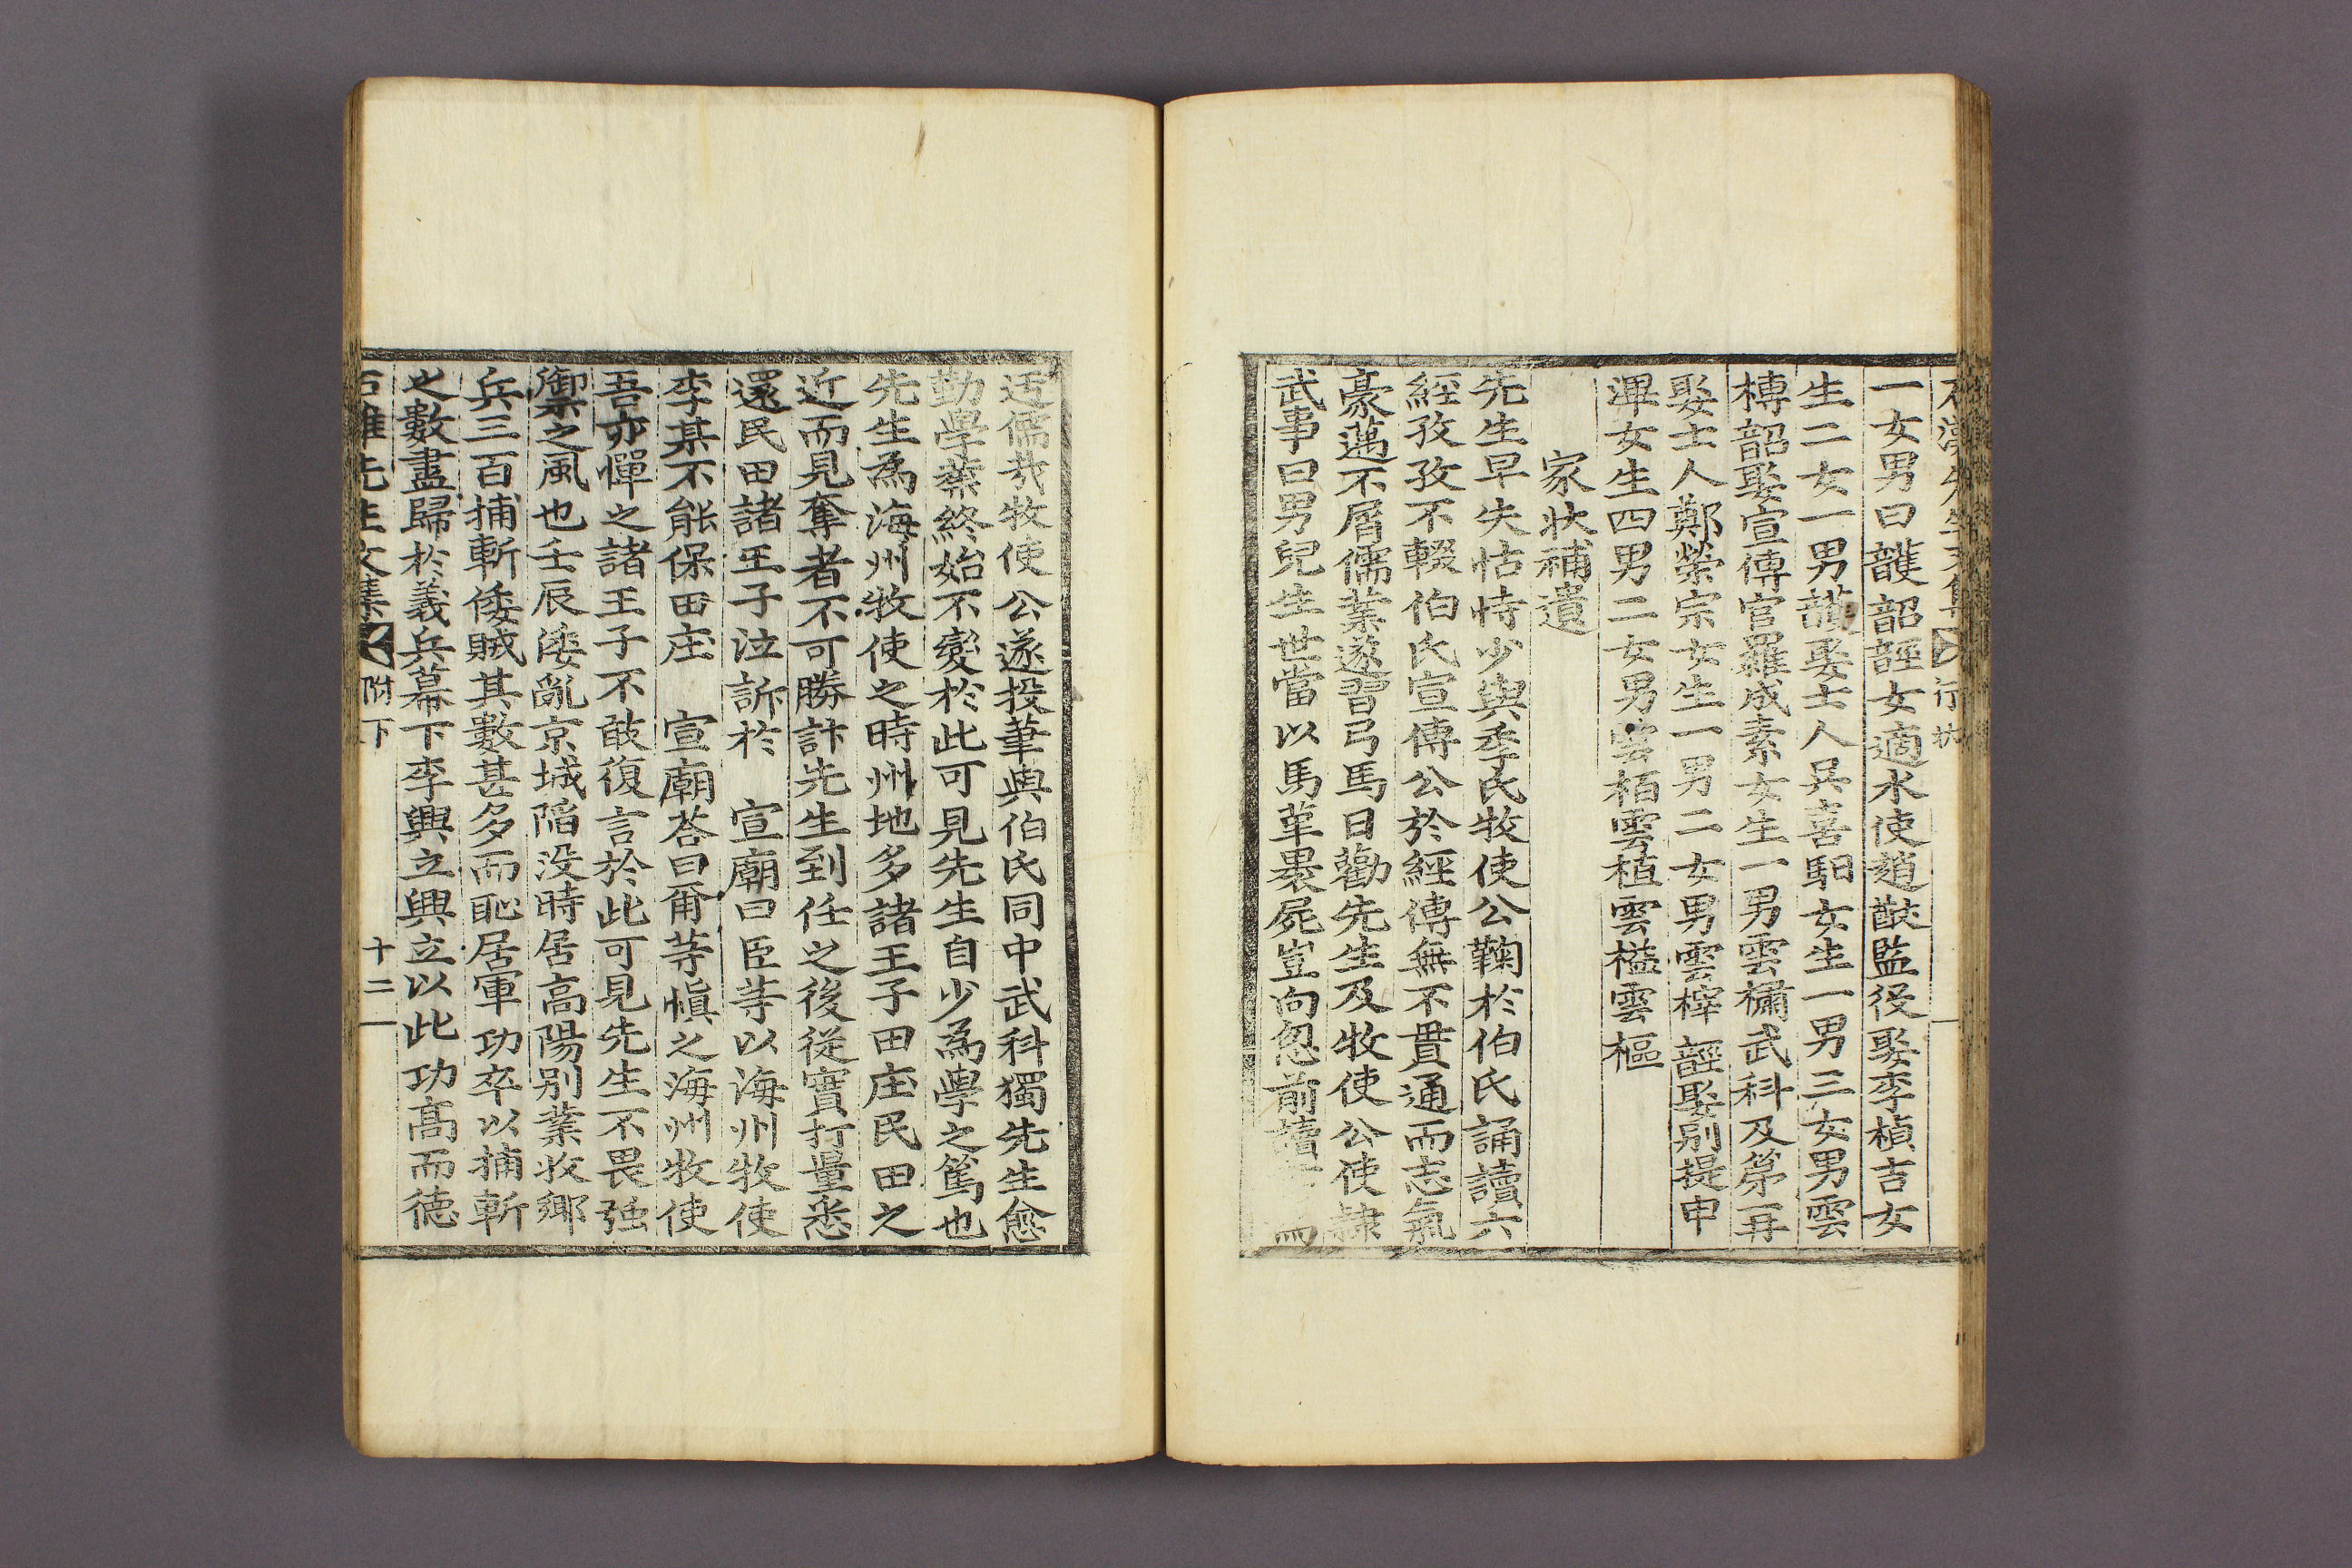 一女男曰頀韶䪫女適水使趙猷監役娶李楨吉女
生二女一男頀娶士人吳喜馹女生一男三女男雲
槫韶娶宣傳官羅成素女生一男雲橚武科及第再
娶士人鄭榮宗女生一男二女男雲榟䪫娶別提申
渾女生四男二女男雲栢雲植雲㯭雲樞
家狀補遺
先生早失怙恃少與季氏牧使公鞠於伯氏誦讀六
經孜孜不輟伯氏宣傳公於經傳無不貫通而志氣
豪邁不屑儒業遂習弓馬日勸先生及牧使公使隸
武事曰男兒生世當以馬革裹屍豈向忽前讀
迃儒㢤牧使公遂投筆與伯氏同中武科獨先生愈
勤學業終始不變於此可見先生自少爲學之篤也
先生爲海州牧使之時州地多諸王子田庄民田之
近而見奪者不可勝計先生到任之後從實打量悉
還民田諸王子泣訴於 宣廟曰臣等以海州牧使
李某不能保田庄 宣廟荅曰爾等愼之海州牧使
吾亦憚之諸王子不敢復言於此可見先生不畏强
禦之風也壬辰倭亂京城陷没時居高陽別業收鄉
兵三百捕斬倭賊其數甚多而恥居軍功卒以捕斬
之數盡歸於義兵幕下李興立興立以此功高而德
先生文集 附下 十二